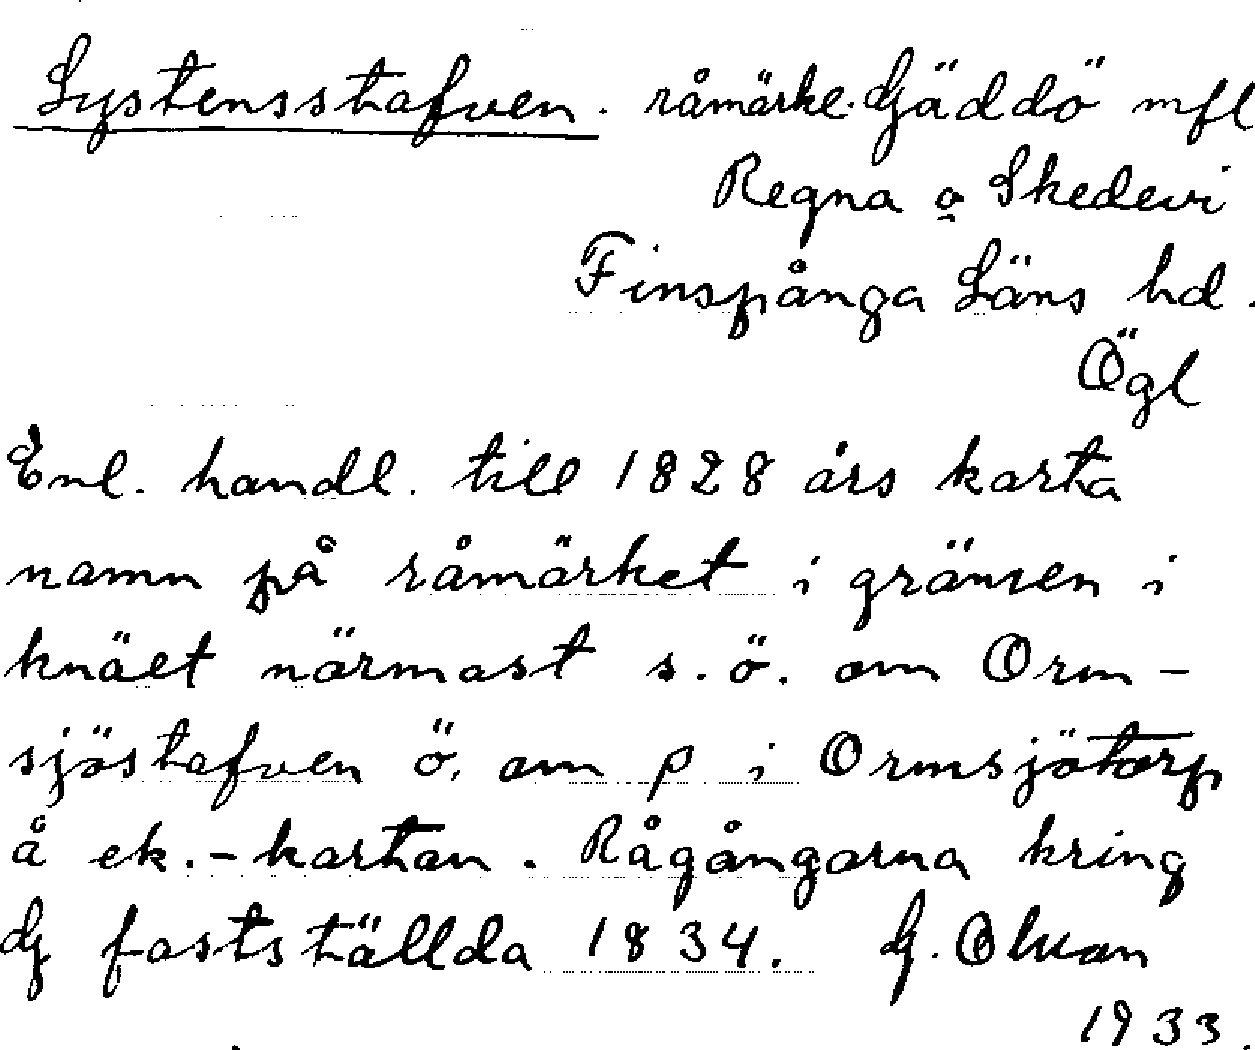 Systensstafven. råmärke. Gäddö mfl
Regna o Skedevi
Finspånga Läns hd.
Ögl
Enl. handl. till 1828 års karta
namn på råmärket i gränsen i
knäet närmast s.ö. om Orm-
sjöstafven ö. om p i Ormsjötorp
å ek.-kartan. Rågångarna kring
G fastställda 1834. G.
1933.